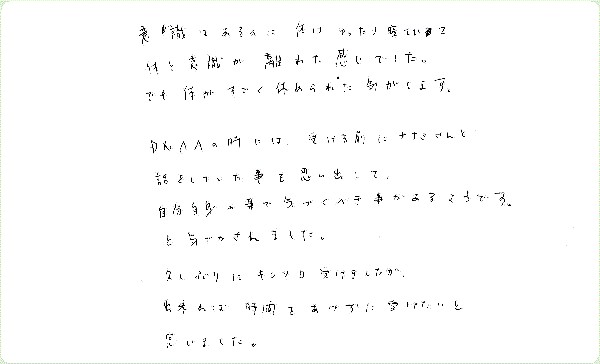 意識はあるのに 体は ゆったり寝ていて
体と意識が 離れた感じでした。
でも 体が すごく 休められた気がします。
の時には、受ける前に ナナエさんと
話をしていた事を思い出して、
自分自身の事で気づくべき事があるそうです。
と気づかされました。
久しぶりに 受けましたが、
出来れば 時間を あけずに 受けたいと
思いました。